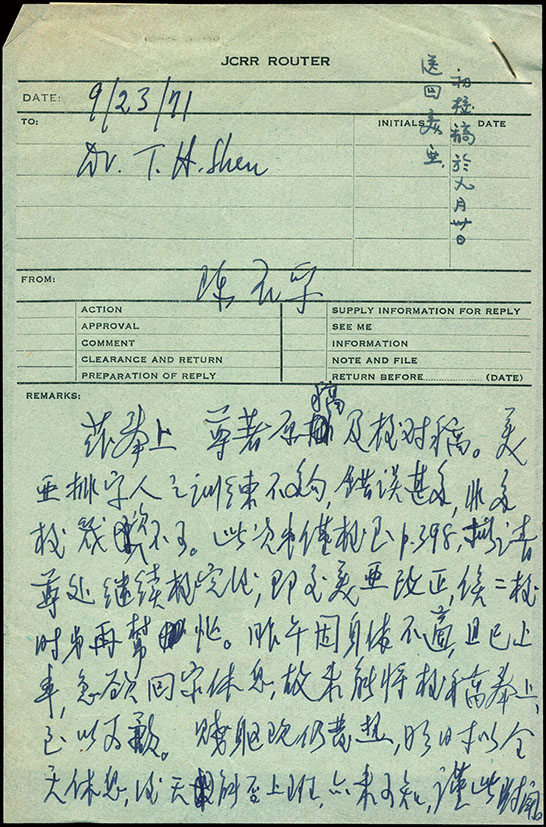 JCRR ROUTER
DATE: 9/23/71
TO: INITIALS DATE
初校稿於九月卅日
送回美亞
Dr. T. H. Shen
FROM: 陳
ACTION SUPPLY INFORMATION FOR REPLY
APPROVAL SEE ME
COMMENT INFORMATION
CLEARANCE AND RETURN NOTE AND FILE
PREPARATION OF REPLY RETURN BEFORE (DATE)
REMARKS:
茲奉上 尊著原稿及校对稿。美
亚排字人之训练不夠,錯误甚多,非多
校 不可。此次 僅校至p.398,拟请
尊处继续校完後,即至美亚改正,俟二校
时 再幫忙。昨午因身体不適,且已上
車,急欲回家休息,故未能将校稿奉上,
至以为歉。賤軀晚仍發热,明日拟以全
天休息,後天 能否上班,亦未可知,谨此